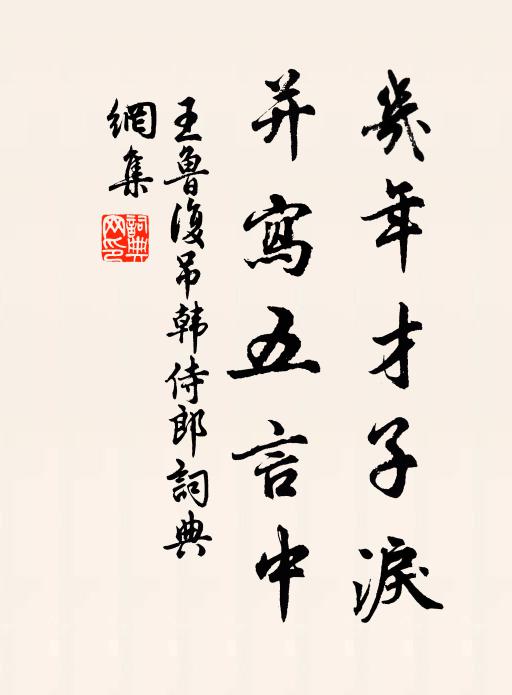 幾年才子淚
并寫五言中
王魯復吊韓侍郎詞典
網集
詞典
网印